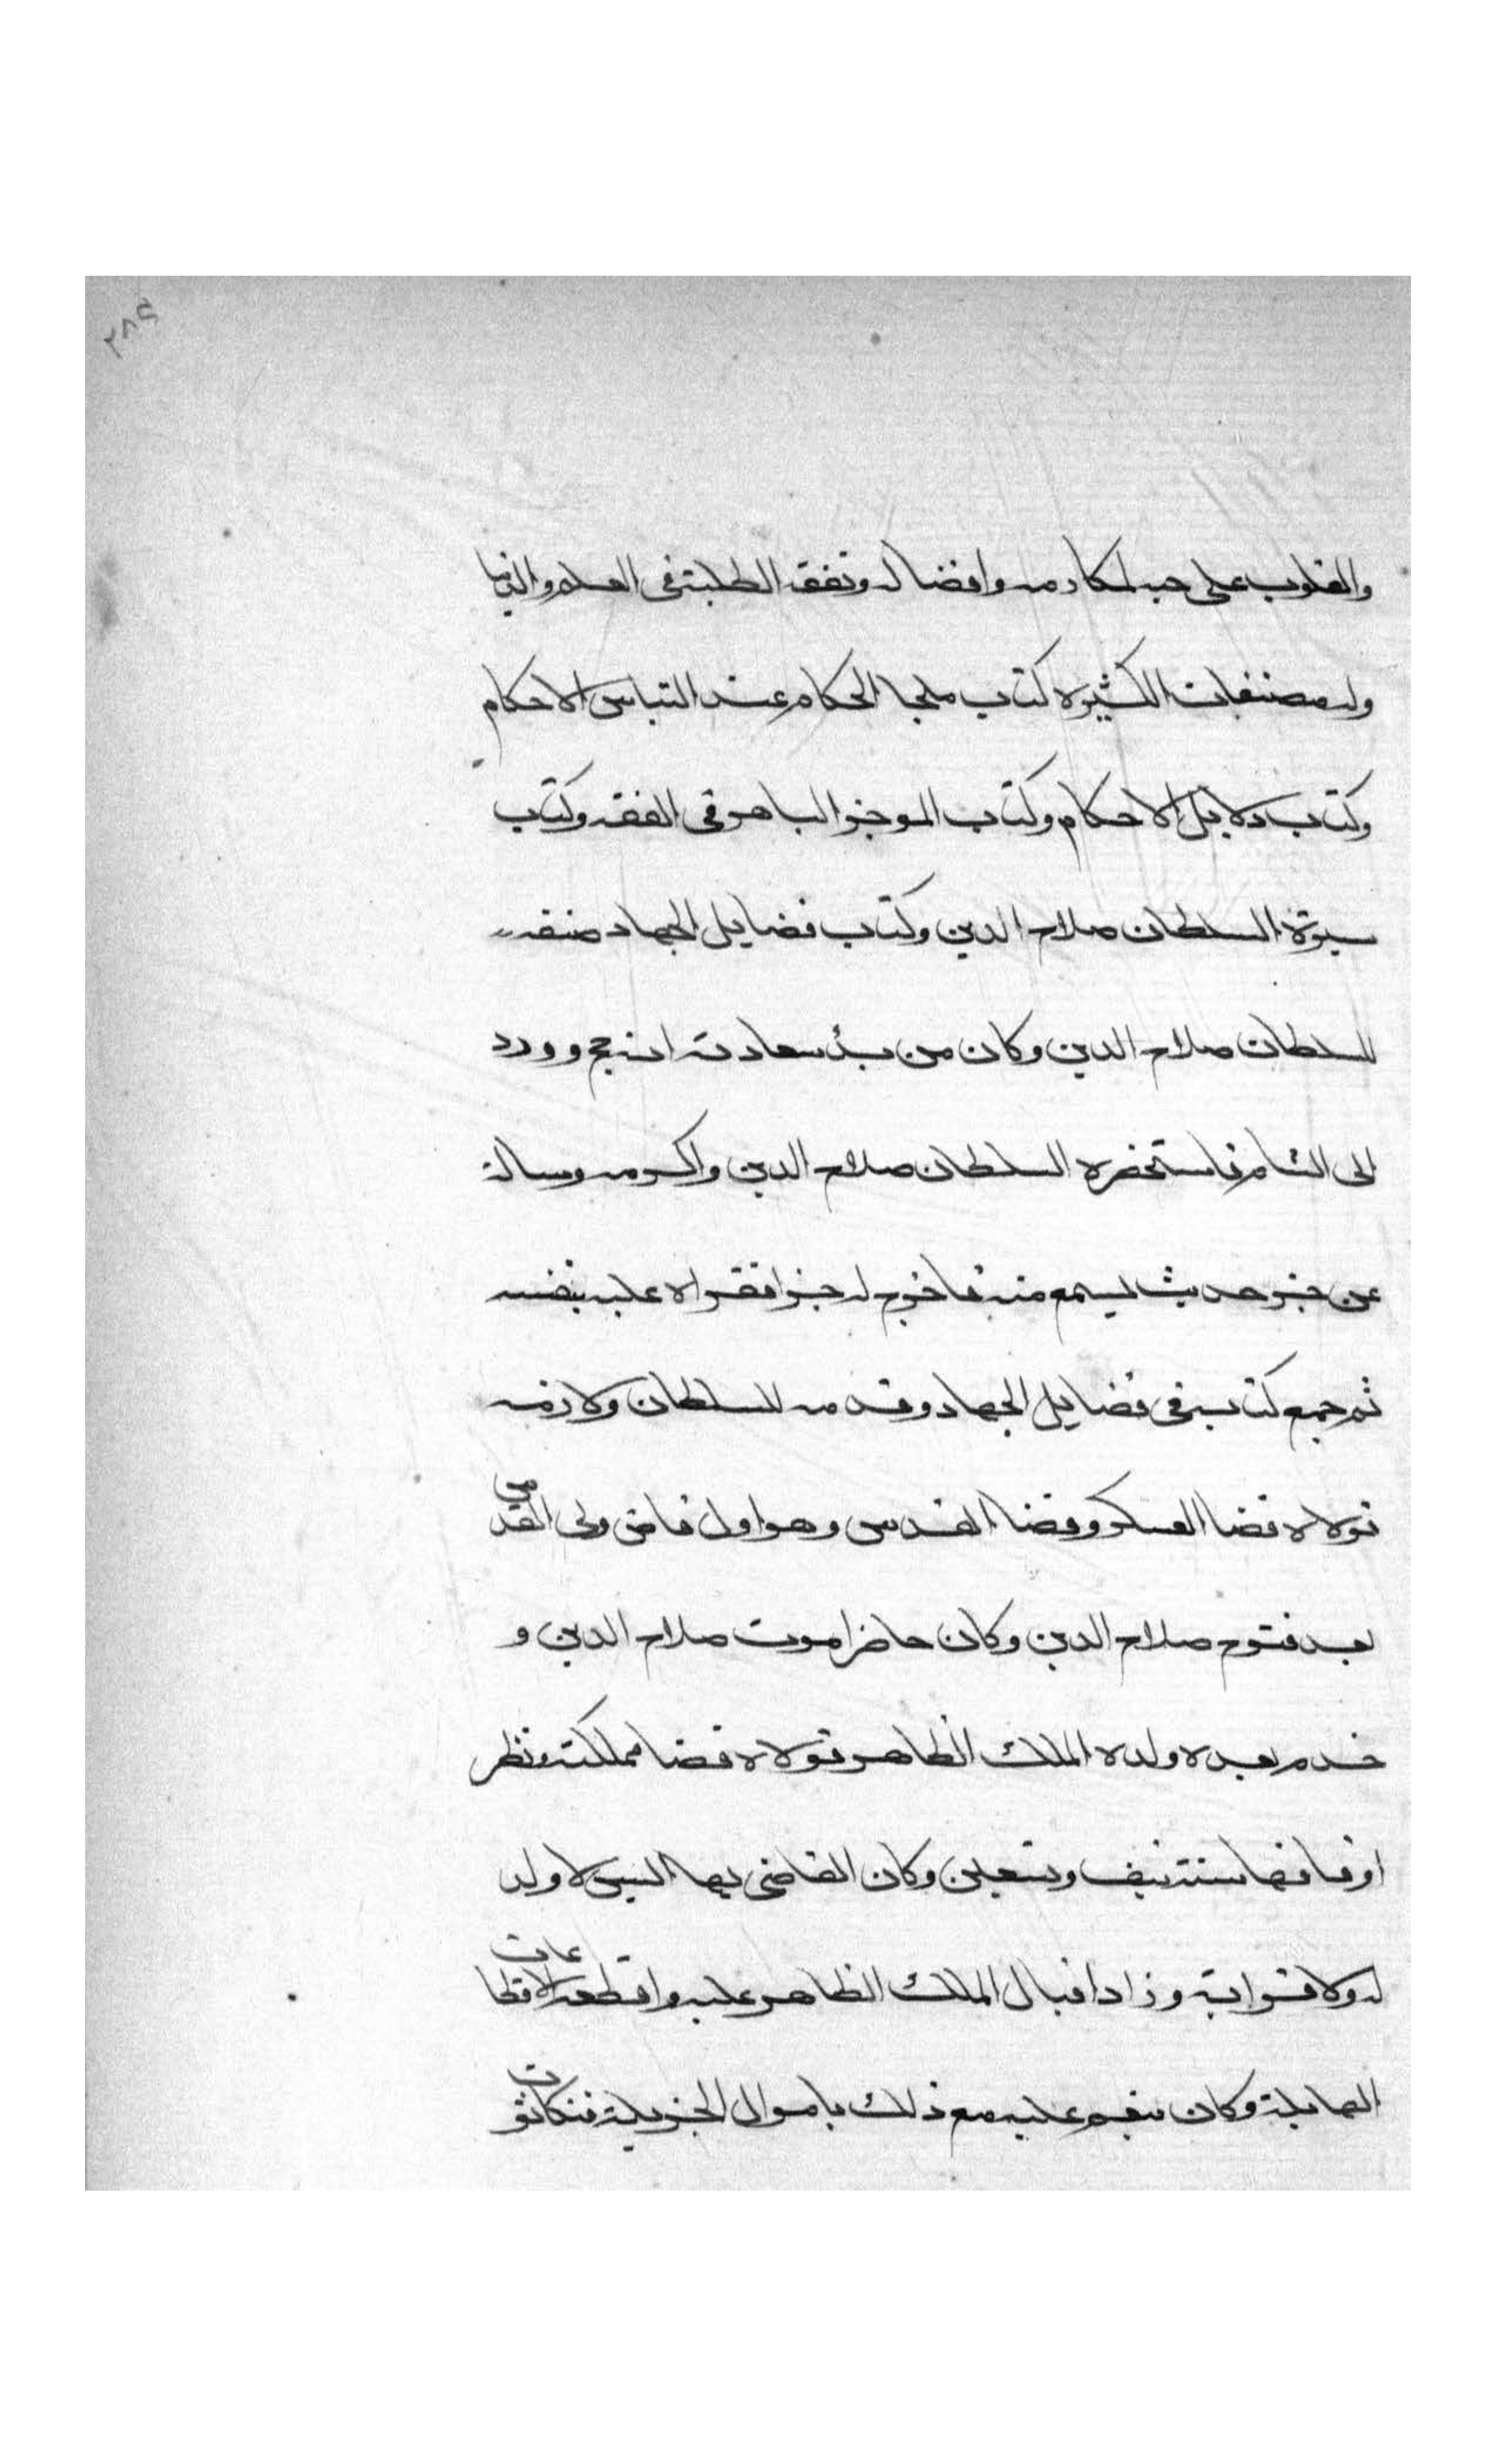 والقلوب على حبه لمكارمه وافضاله وتفقه الطلبة في العلم والدنيا
وله مصنفات الكثيرة كتاب ملجا الحكام عند التباس الاحكام
وكتاب دلايل الاحكام وكتاب الموجز الباهر في الفقه وكتاب
سيرة السلطان صلاح الدين وكتاب فضايل الجهاد صنفه
للسلطان صلاح الدين وكان من بدؤ سعادته انه حج وورد
الى الشام فاستحضره السلطان صلاح الدين واكرمه وساله
عن جزء حديث ليسمع منه فاخرج له جزا فقراه عليه بنفسه
ثم جمع كتابه في فضايل الجهاد وقدمه للسلطان ولازمه
فولاه قضا العسكر وقضا القدس وهو اول قاضي ولى القدس
بعد فتوح صلاح الدين وكان حاضرا موت صلاح الدين و
خدم بعده ولده الملك الظاهر فولاه قضا مملكته ونظر
اوقافها سنة نيف وتسعين وكان القاضي بها اليس لا ولد
له ولا قرابة وزاد اقبال الملك الظاهر عليه واقطعه الاقطاعات
الهايلة وكان ينعم عليه مع ذلك باموال الجزيلة فتكاثرت